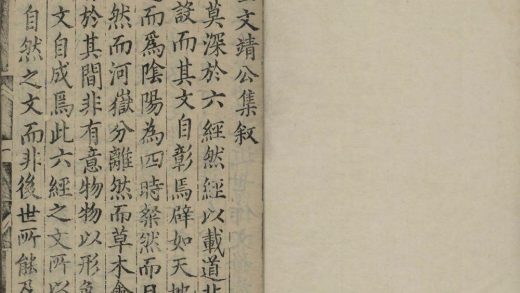 文靖公集叙
莫深於六經然經以載道非
設而其文自彰焉辟如天地
而爲陰陽為四時粲然而日
然而河嶽分離然而草木
於其間非有意物物以形
文自成焉此六經之文所以
自然之文而非後世所能及